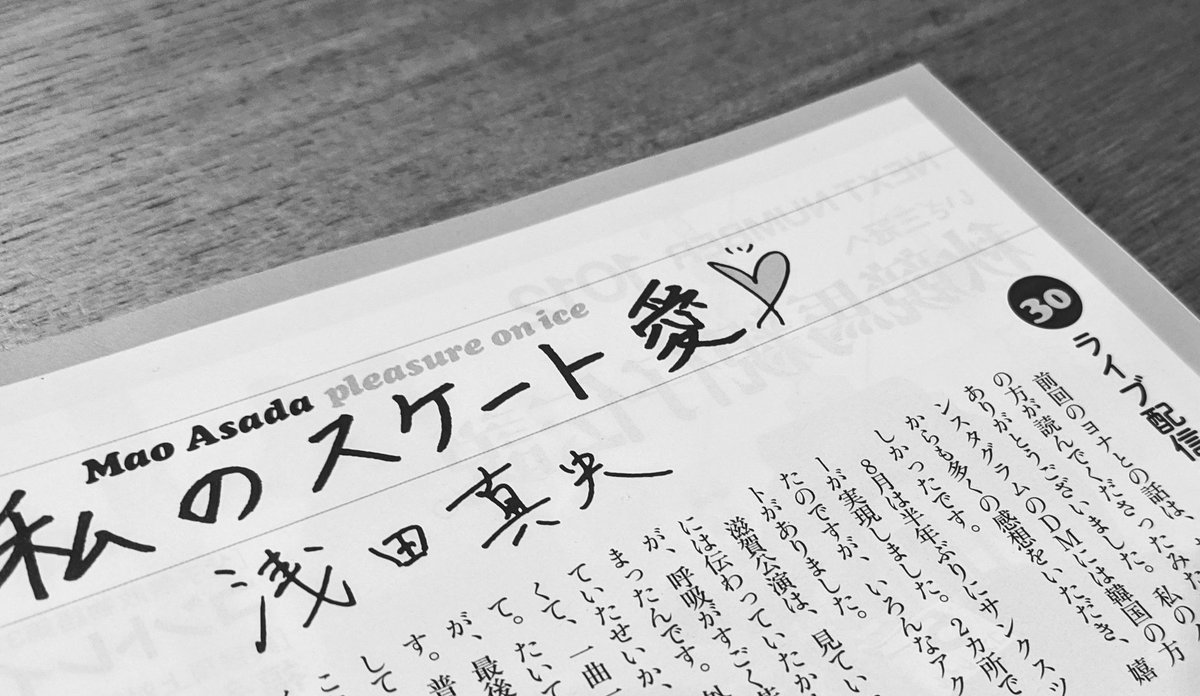 Mao Asada pleasure on ice
私のスケート愛
浅田真央
30 ライブ配信
前回のヨナとの話は、
の方が読んでくださったみた
ありがとうございました。私のイ
ンスタグラムのDMには韓国の方
からも多くの感想をいただき、嬉
しかったです。
8月は半年ぶりにサンクスツ
ーが実現しました。2カ所で
たのですが、いろんなアク
トがありました。
滋賀公演は、見てい
には伝わっていたか
が、呼吸がすごく
まったんです。
ていたせいか、
くて、一曲
て。たいて
が、最後
す。普
して
こ